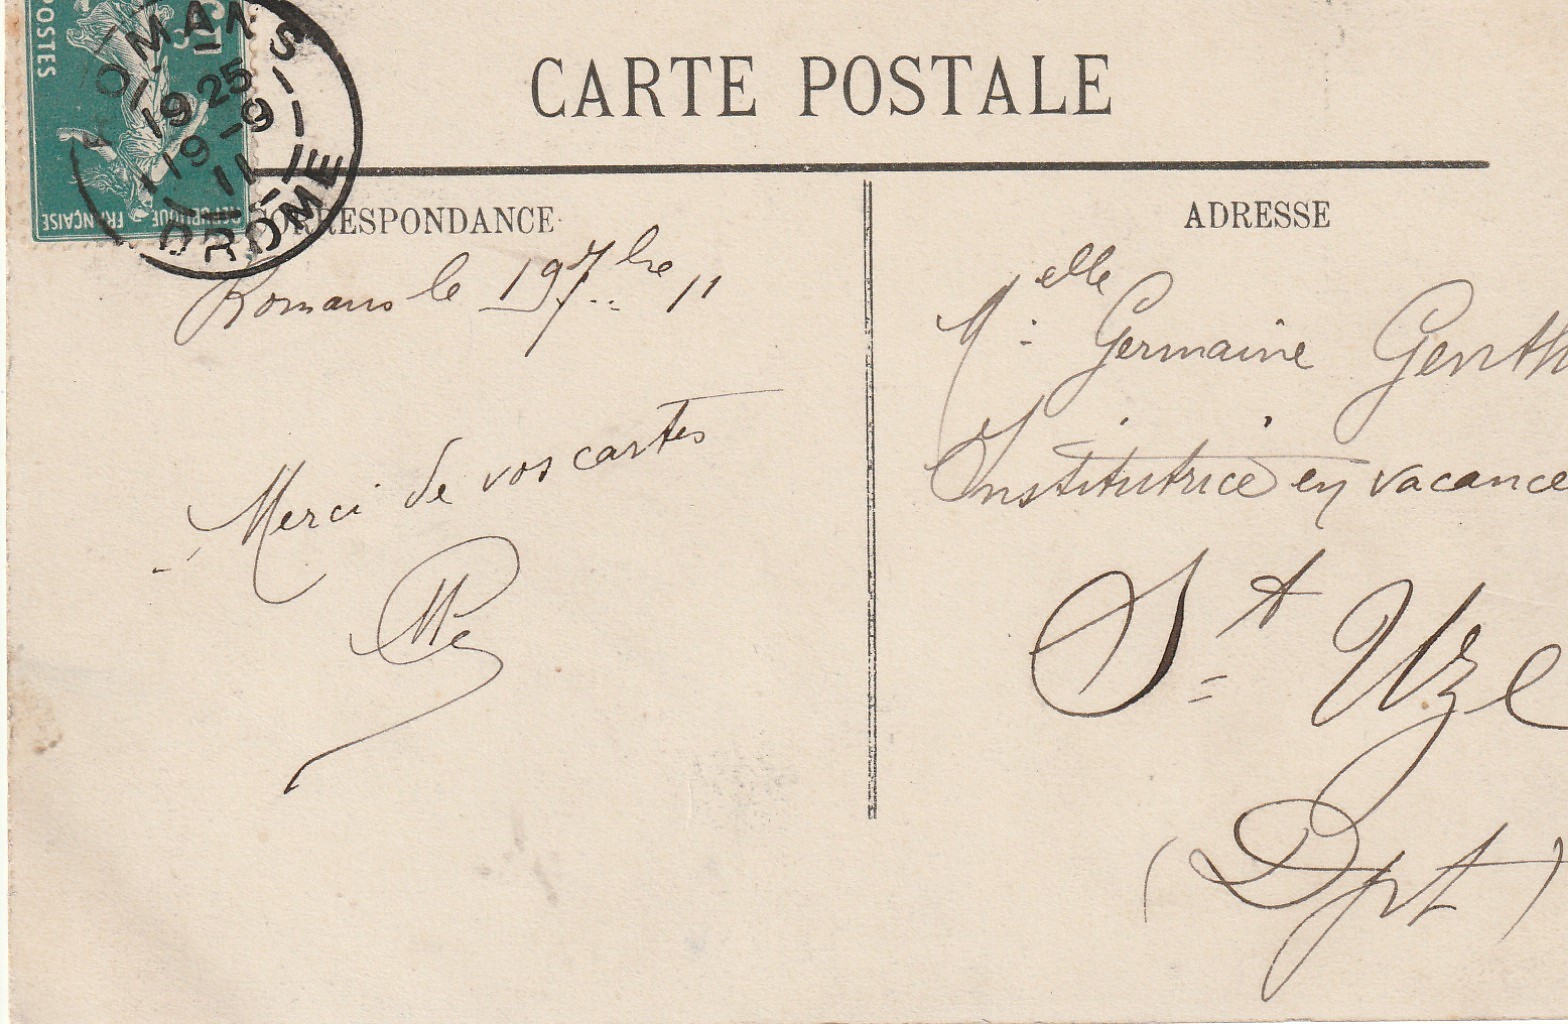 CARTE POSTALE
POSTES
5c
REPUBLIQUE FRANÇAISE
ROMANS
19 25
19-9
11
DROME
CORRESPONDANCE
ADRESSE
Romans le 19 7bre 11
Merci de vos cartes
Melle Germaine Genth
Institutrice en vacance
St Uze
(Dpt)